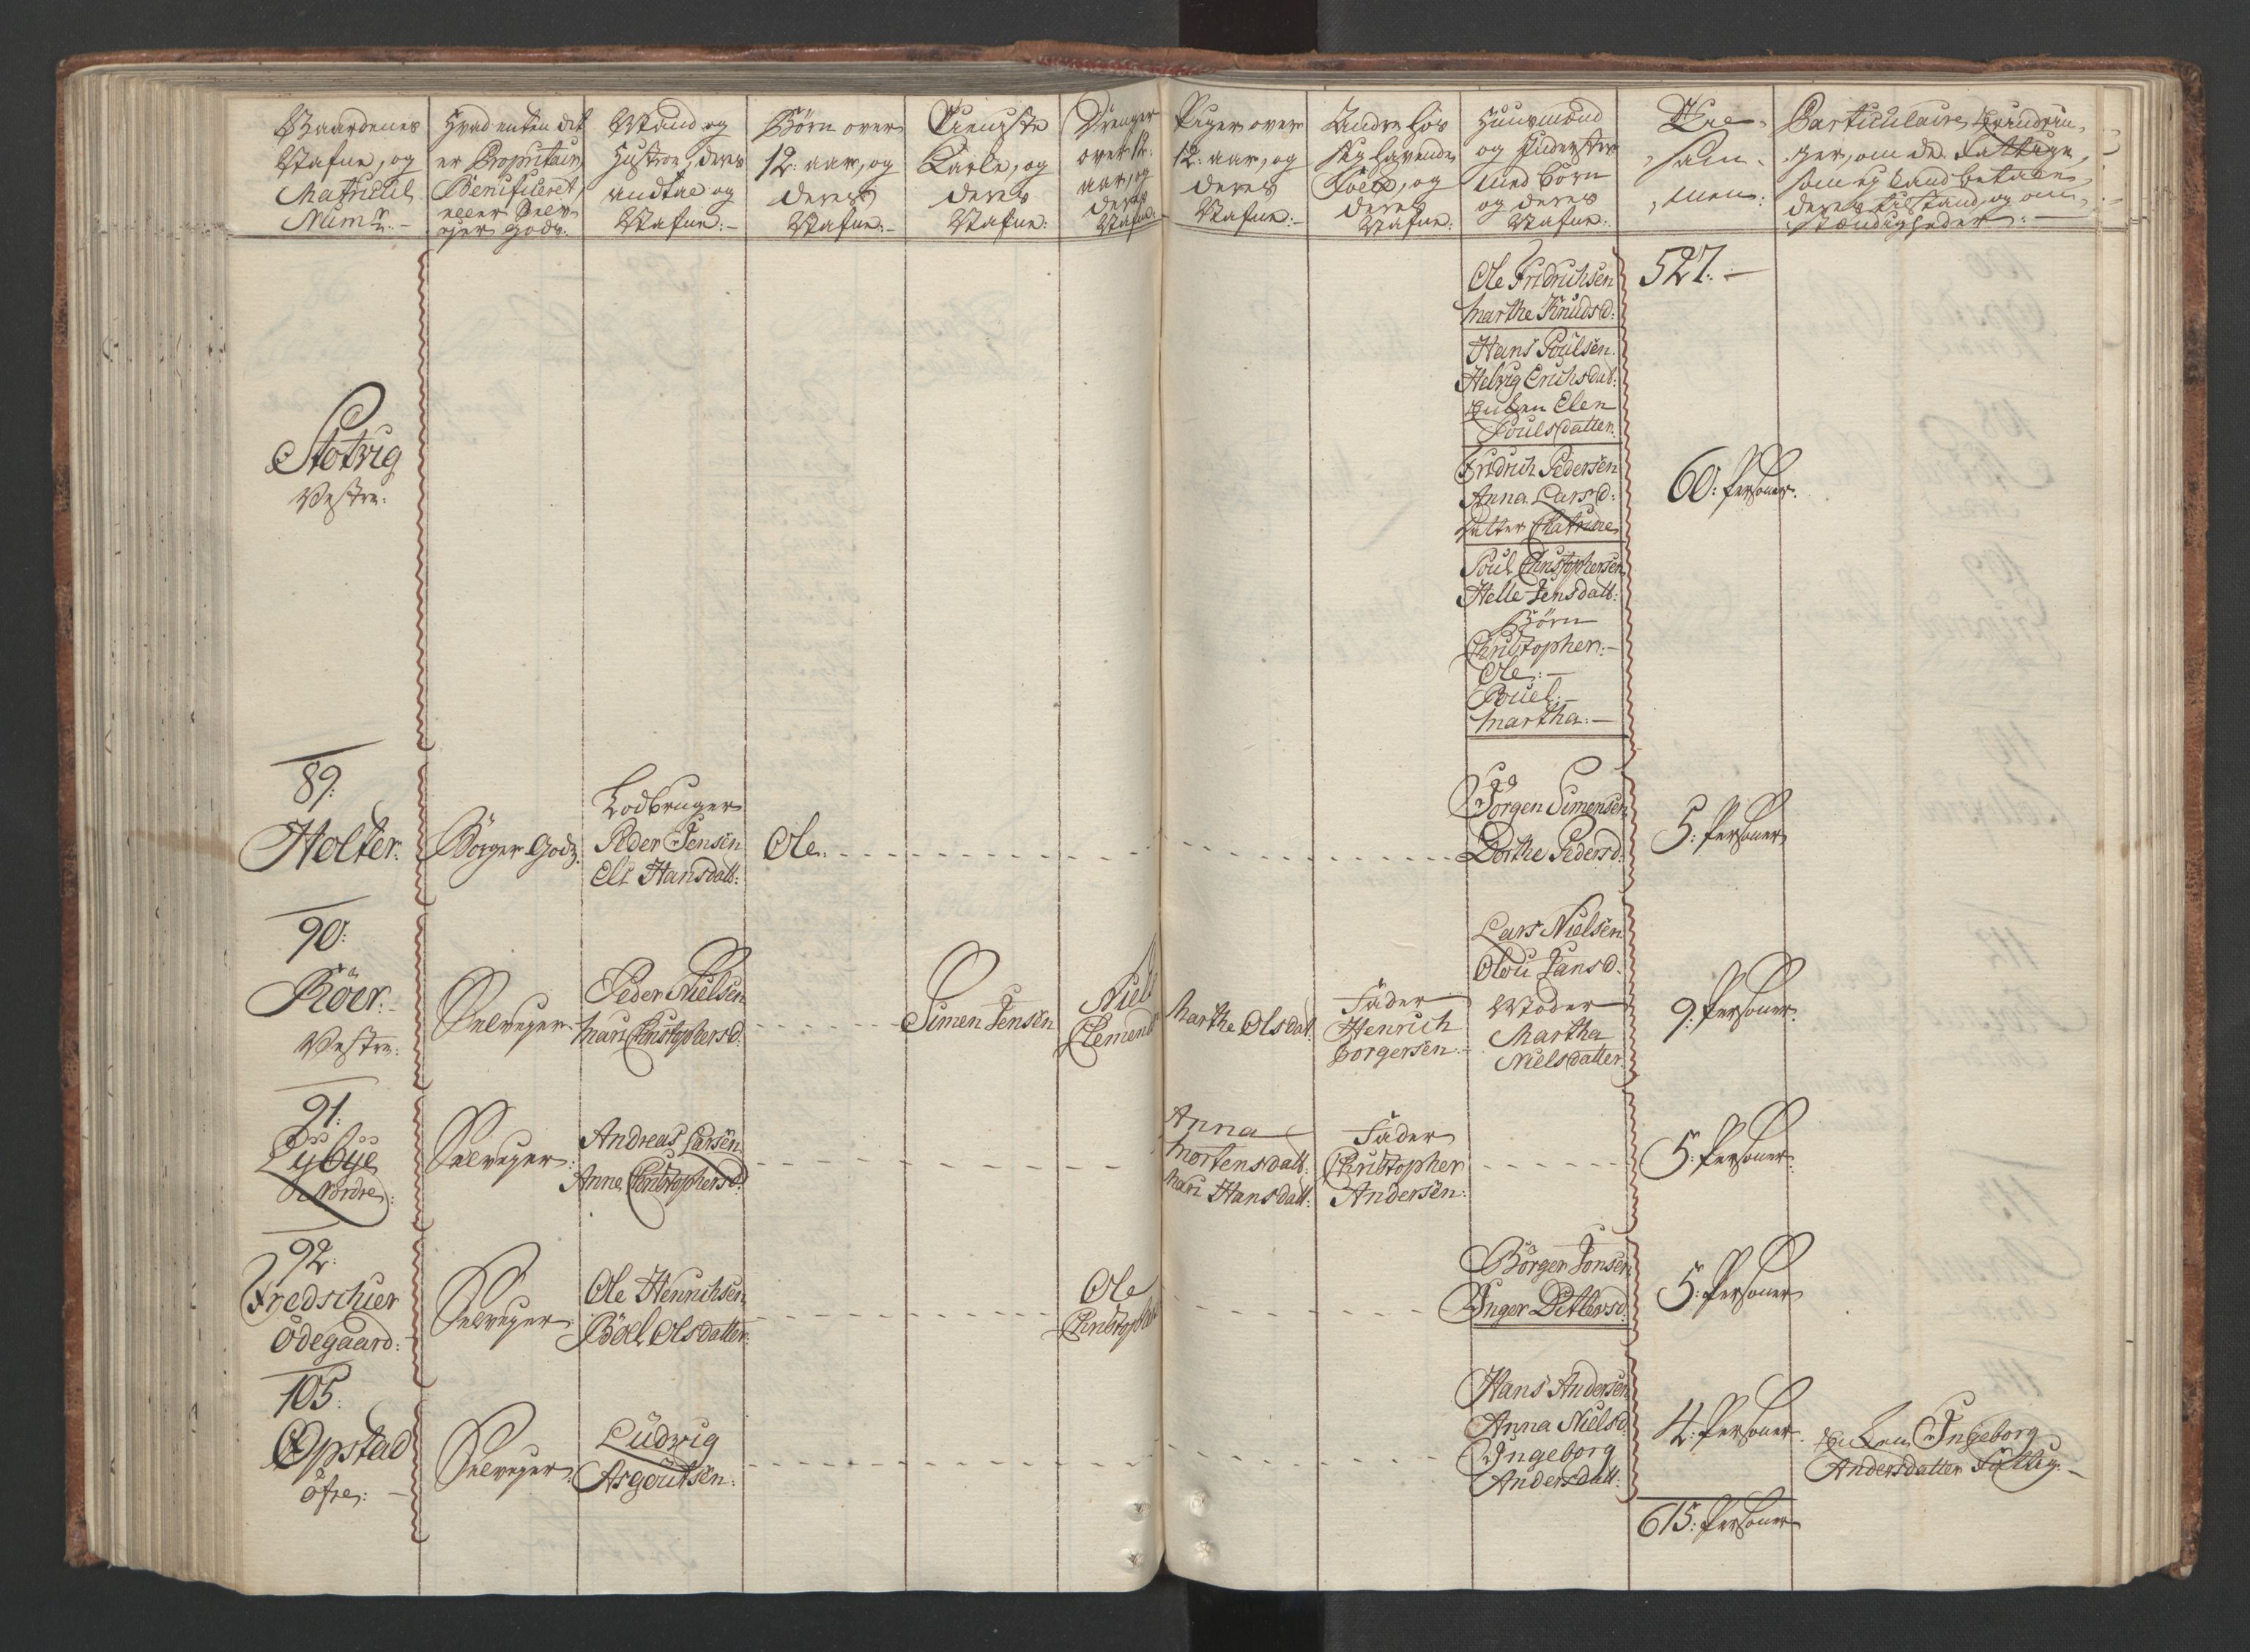 Gaardenes
Nafne, og
Matricul
Num:r. -
Hvad enten det
er Propritair,
Benificeret,
eller Selv-
ejer Gods.
Mand og
Hustrue, deres
andtal og
Nafne: -
Børn over
12: aar, og
deres
Nafne: -
Tieniste
Karle, og
deres
Nafne:
Drenger
over 12:
aar, og
deres
Nafne:
Piger over
12: aar, og
deres
Nafne: -
Andre hos
sig havende
Folck, og
deres
Nafne:
Huusmænd
og Inderster
med børn
og deres
Nafne:
Til-
sam-
men:
Particulaire
ger, om de fattige,
som ej kand betale,
deres tilstand, og om-
stændigheder: -
Stotvig
Vestre:
Ole Fridrichsen
Marthe Knudsd:
Hans Poulsen
Helvig Erichsdat:
Enken Elen
Poulsdatter.
Fridrich Pedersen
Anna Larsd:
datter Chatrine
Poul Christophersen
Helle Jensdatt:
Børn
Christopher: -
Ole: -
Bouel: -
Martha: -
527: -
60: Personer.
89:
Holter.
Börger Godz.
Lodbruger
Peder Jensen
Eli Hansdatt:
Ole.
Jörgen Simensen
Dorthe Pedersd:
5: Personer
90:
Röer. -
Vestre:
Selvejer.
Peder Nielsen
Mari Christophersd.
Simen Jensen
Niels
Clemends
Marthe Olsdat.
Fader
Henrich
Borgersen. -
Lars Nielsen
Olou Jansd.
Moder
Martha
Nielsdatter
9: Personer.
91:
Lÿbÿe
Nordre:
Selvejer:
Andreas Larsen
Anne Christophersd:
Anna
Mortensdatt:
Mari Hansdatt:
Fader
Christopher
Andersen:
5: Personer.
92:
Fredschier
Ödegaard: -
Selvejer:
Ole Henrichsen
Böel Olsdatter:
Ole
Christoph
Börger Jonsen
Inger Ditlevsd:
5: Personer
105:
Opstad
öfre: -
Selvejer:
Ludwig
Asgoutsen:
Hans Andersen
Anna Nielsd.
Ingeborg
Andersdatt:
4: Personer.
Enken Ingeborg
Andersdatter Fattig. -
615: Personer